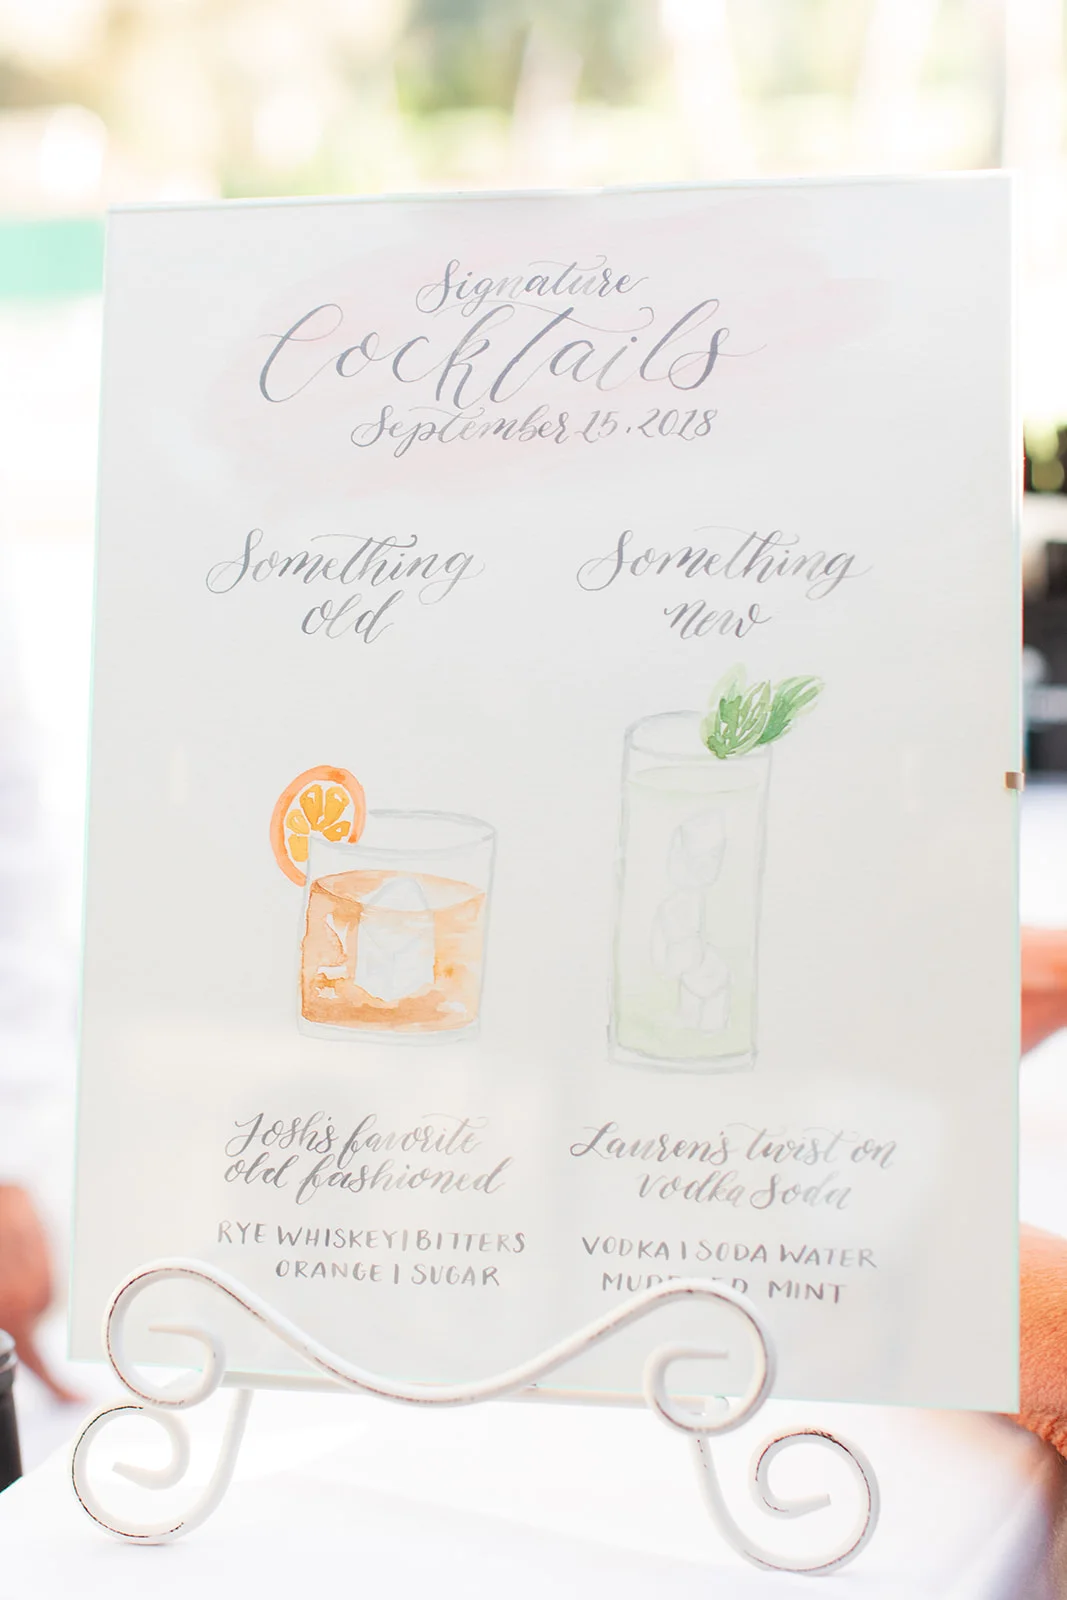 Signature
Cocktails
September 15, 2018
Something
old
Something
new
Josh's favorite
old fashioned
RYE WHISKEY | BITTERS
ORANGE | SUGAR
Lauren's twist on
vodka soda
VODKA | SODA WATER
MINT